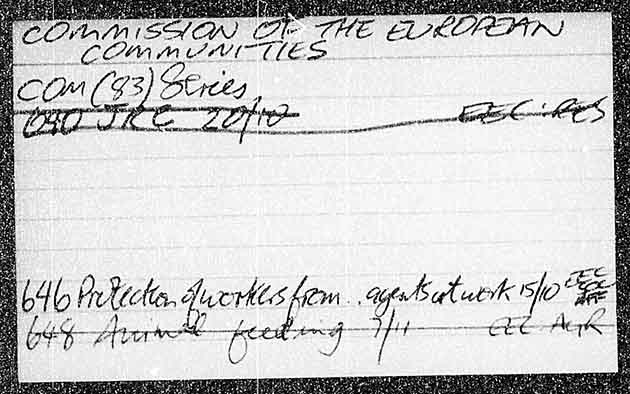 COMMISSION OF THE EUROPEAN
COMMUNITIES
COM (83) Series
640 JRC 20/10 EEC:RES
646 Protection of workers from .. agents at work 15/10 EEC
648 Animal feeding 7/11 EEC AgR